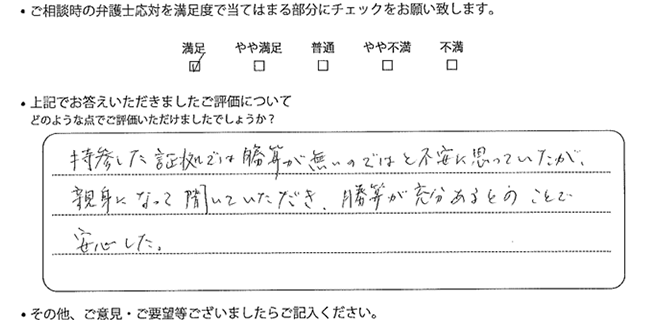 ・ご相談時の弁護士応対を満足度で当てはまる部分にチェックをお願い致します。
満足 やや満足 普通 やや不満 不満
・上記でお答えいただきましたご評価について
どのような点でご評価いただけましたでしょうか？
持参した証拠では勝算が無いのではと不安に思っていたが、
親身になって聞いていただき、勝算が充分あるとのことで
安心した。
・その他、ご意見・ご要望等ございましたらご記入ください。